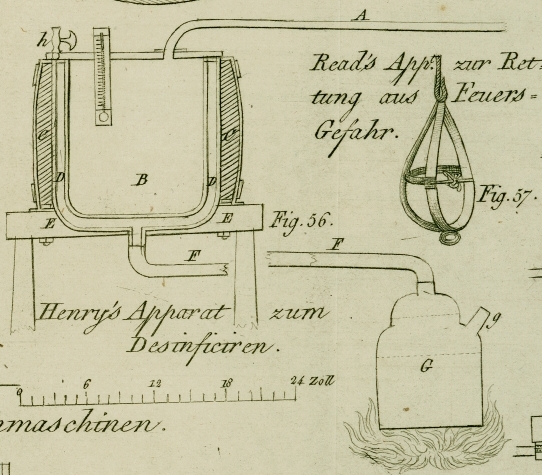 A
h
Read's App. zur Ret=
tung aus Feuers=
Gefahr.
C
C
D
B
D
Fig. 57.
E
E
Fig. 56.
F
F
Henry's Apparat zum
Desinficiren.
g
G
0 6 12 18 24 Zoll
nmaschinen.